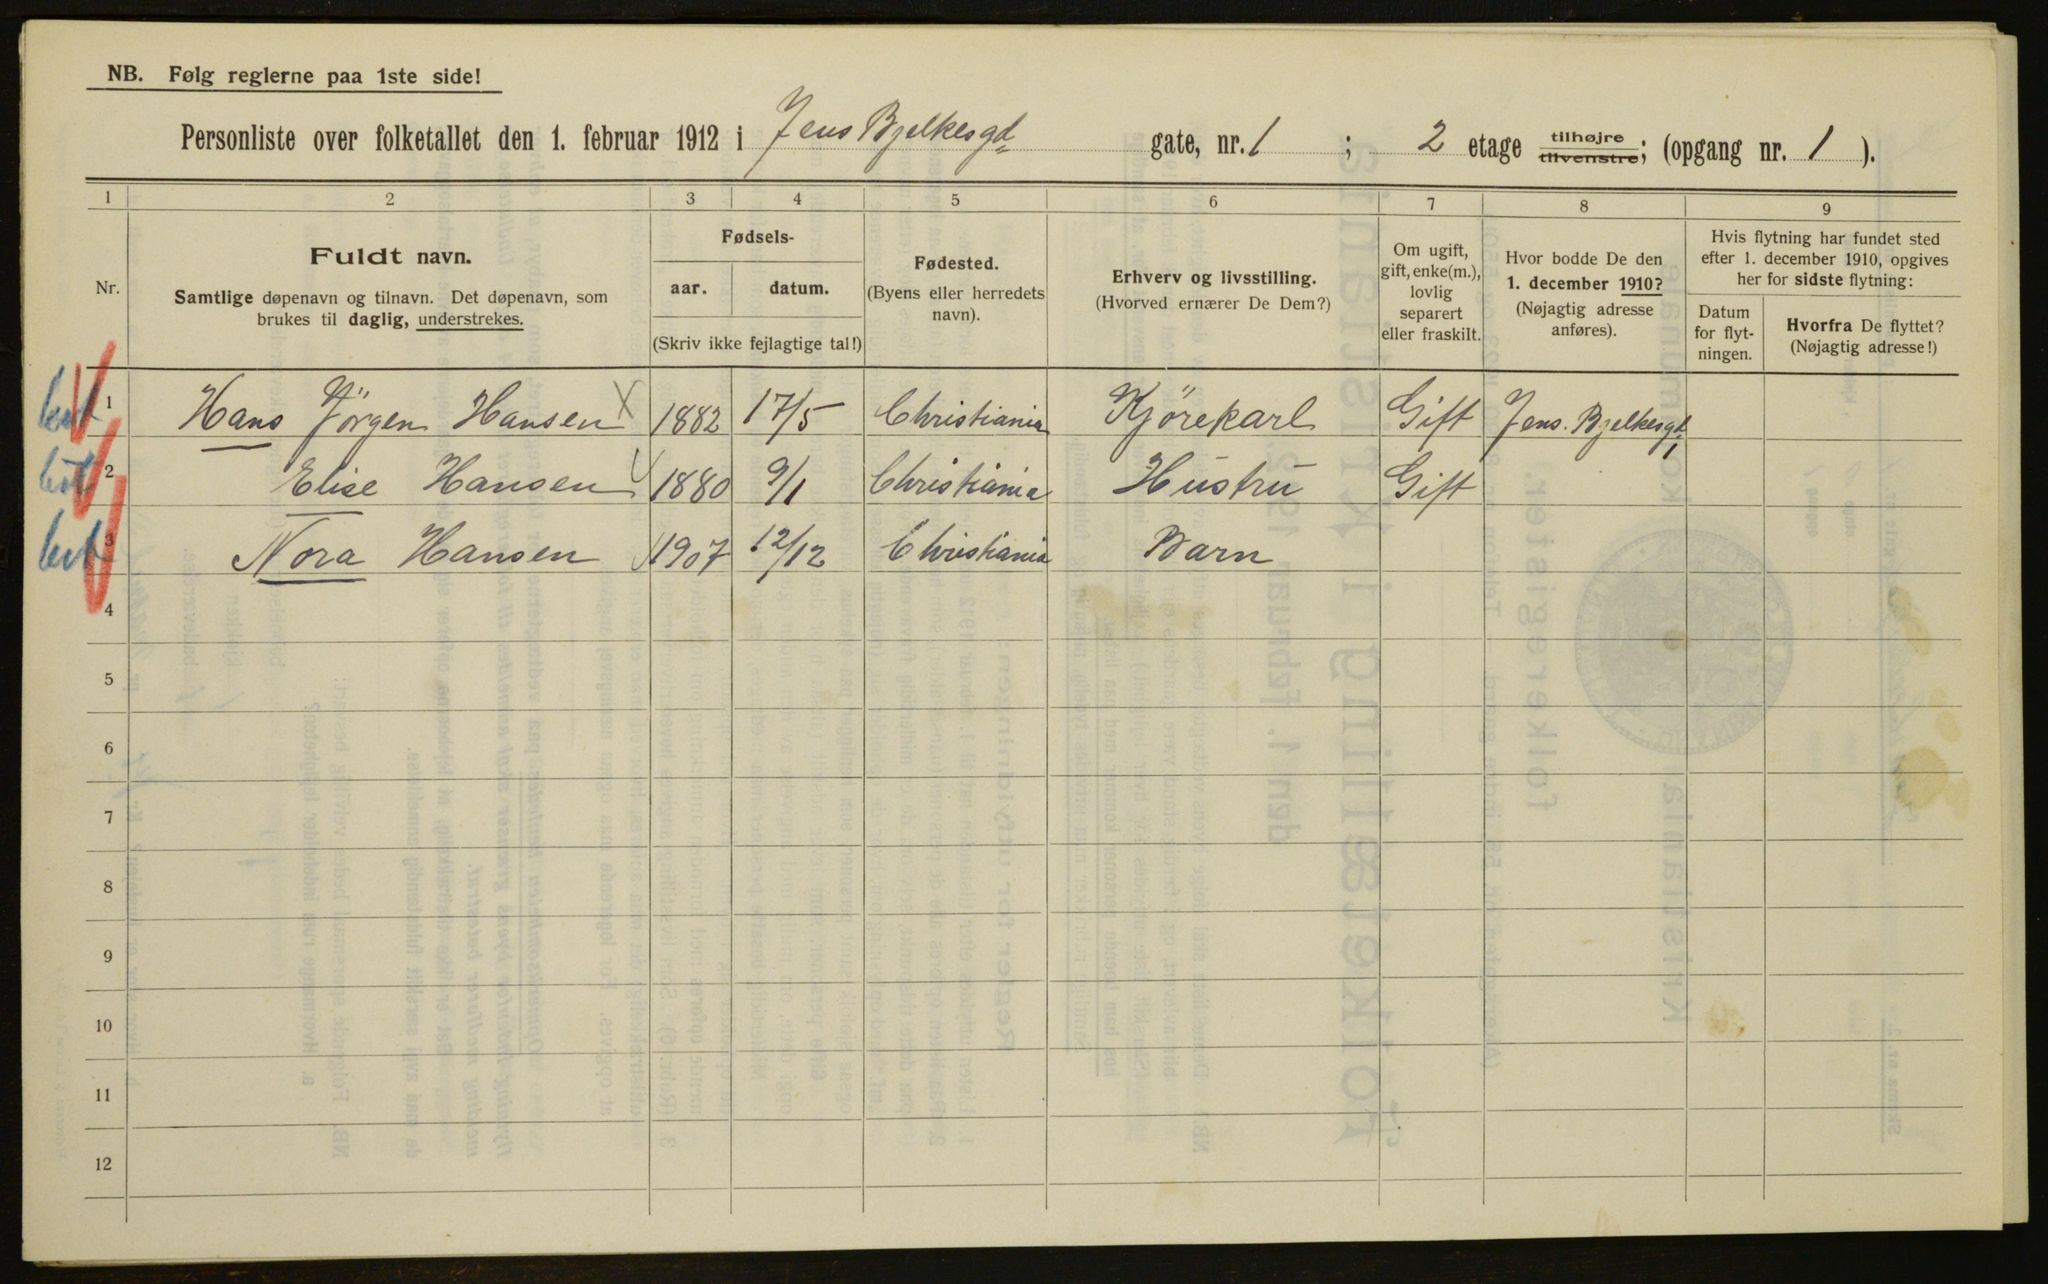 NB. Følg reglerne paa 1ste side!
Personliste over folketallet den 1. februar 1912 i Jens Bjelkesgd gate, nr. 1 ; 2 etage tilhøjre tilvenstre; (opgang nr. 1 ).
1 2 3 4 5 6 7 8 9
Nr.
Fuldt navn.
Samtlige døpenavn og tilnavn. Det døpenavn, som
brukes til daglig, understrekes.
Fødsels-
aar. datum.
(Skriv ikke fejlagtige tal!)
Fødested.
(Byens eller herredets
navn).
Erhverv og livsstilling.
(Hvorved ernærer De Dem?)
Om ugift,
gift, enke(m.),
lovlig
separert
eller fraskilt.
Hvor bodde De den
1. december 1910?
(Nøjagtig adresse
anføres).
Hvis flytning har fundet sted
efter 1. december 1910, opgives
her for sidste flytning:
Datum
for flyt-
ningen.
Hvorfra De flyttet?
(Nøjagtig adresse!)
1 Hans Jörgen Hansen X 1882 17/5 Christiania Kjörekarl Gift Jens. Bjelkesgd 1
2 Elise Hansen 1880 9/1 Christiania Hustru Gift
3 Nora Hansen 1907 12/12 Christiania Barn
4
5
6
7
8
9
10
11
12